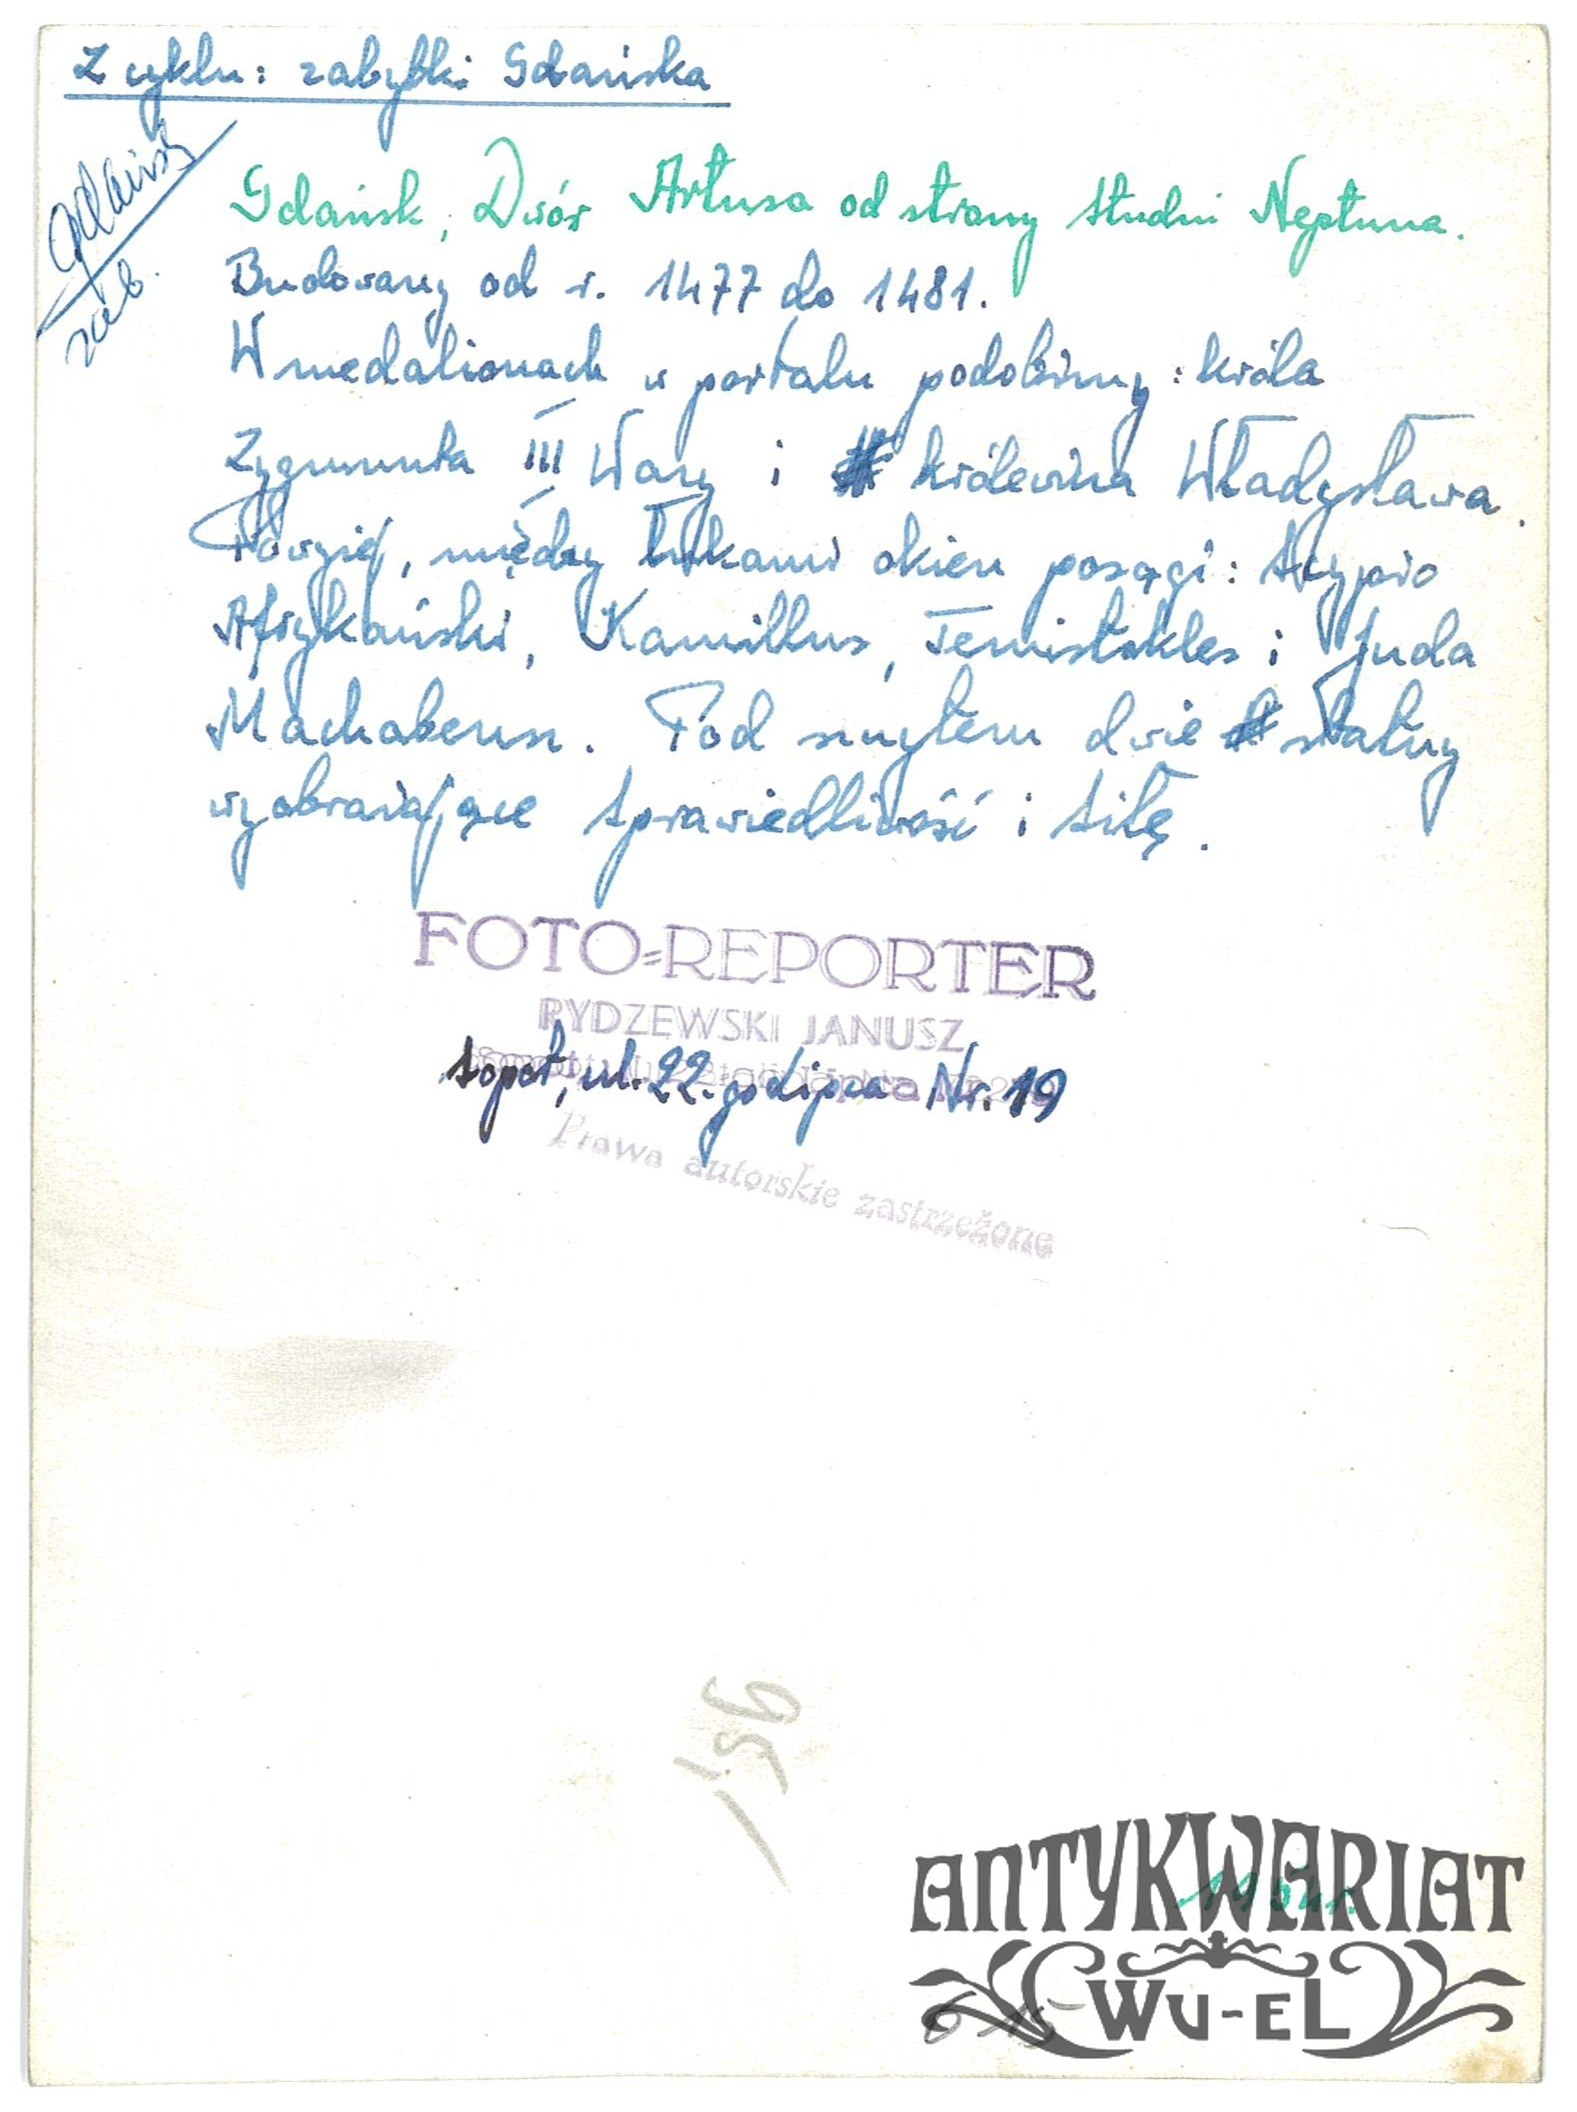 Z cyklu: zabytki Gdańska
Gdańsk
zab.
Gdańsk, Dwór Artusa od strony studni Neptuna.
Budowany od r. 1477 do 1481.
W medalionach w portalu podobizny: króla
Zygmunta III Wazy i królewicza Władysława.
Powyżej, między łukami okien posągi: Scypio
Afrykański, Kamillus, Temistokles i Juda
Machabeusz. Pod szczytem dwie statuy
wyobrażające sprawiedliwość i siłę.
FOTO=REPORTER
RYDZEWSKI JANUSZ
Sopot, ul. 22-go Lipca Nr. 19
Prawa autorskie zastrzeżone
ANTYKWARIAT
WU-EL